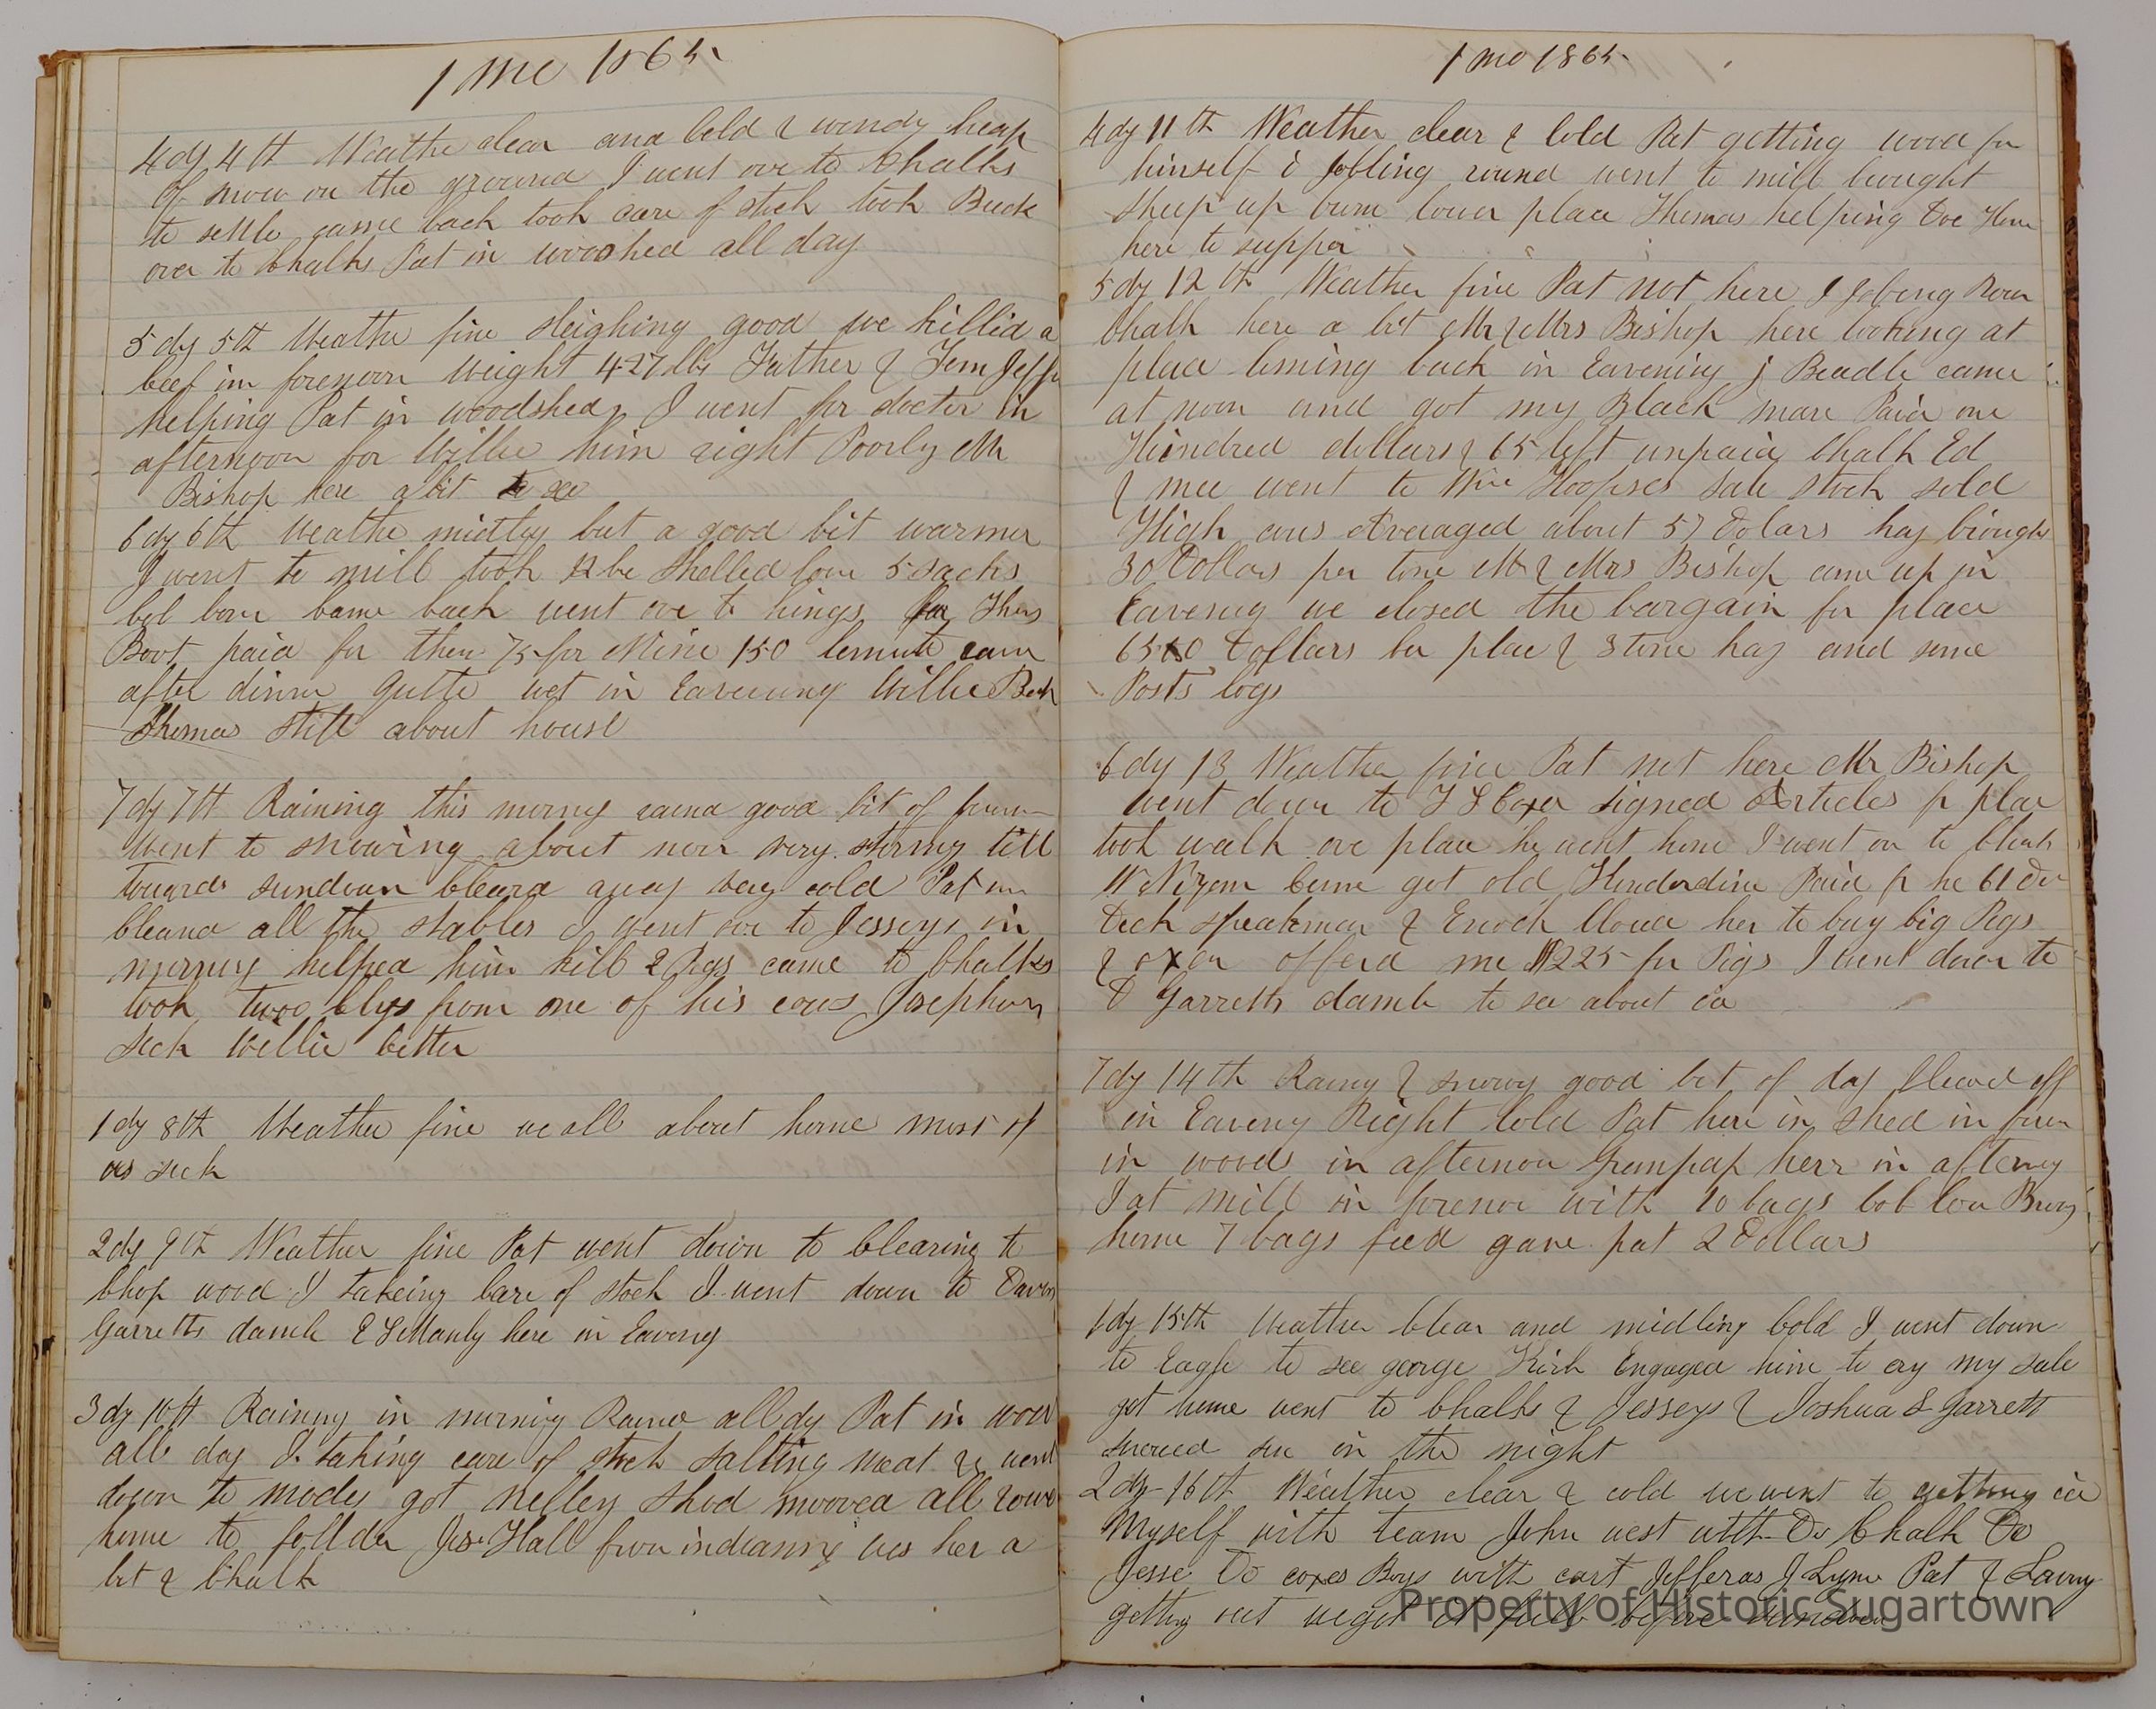 1 mo 1865
4 dy 4th Weathe clear and Cold & windy heap
of snow on the ground I went ove to Chalks
to settle came back took care of stock took Buck
over to Chalks Pat in wooshed all day
5 dy 5th Weathe fine Sleighing good we killid a
beef im forenoon Weight 427 lbs Father & Jem Jeff
helping Pat in woodshed I went for docter in
afternoon for Willie him right Poorly Mr
Bishop here a bit to
6 dy 6th Weathe mistley but a good bit warmer
I went to mill took 12 bu Shelled Corn 5 sacks
Came back went ove to kings for Thos
Boot paid for them 75 for Mine 150 came
after dinner Quite wet in Eavening Willie Beck
Thomas Still about house
7 dy 7th Raining this morning raind good bit of
Went to snowing about noon very stormy till
towards sundown Cleard away very cold Pat
Cleand all the stables I went ove to Jesseys in
morning helped him kill 2 Pigs came to Chalks
took twoo from one of his cows Josephen
Seck Willie better
1 dy 8th Weather fine we all about home most of
us seck
2 dy 9th Weather fine Pat went down to Clearing to
Chop wood I takeing Care of stock I went down to Davis
Garretts damb E S Manly here in Eaveng
3 dy 10th Rainny in morning Raind all dy Pat in wood
all day I taking care of stock salting meat & went
down to modes got Nelley Shod mooved all
home to follder Jes Hall from indianny was her a
bit & Chalk
1 mo 1865
4 dy 11th Weather clear & Cold Pat getting wood for
himself i Jobling round went to mill brought
Sheep up from lower place Thomas helping
here to supper
5 dy 12th Weather fine Pat not here I Jobeng Roun
Chalk here a bit Mr & Mrs Bishop here looking at
place Coming back in Eavening J Beadle came
at noon and got my Black mare Paid one
Hundred dollars & 65 left unpaid Chalk Ed
& mee went to Wm Hoopses sale stock sold
High cows Averaged about 57 Dolars hay brought
30 Dollars per tone Mr & Mrs Bishop came up in
Eavening we closed the bargain for place
6500 Dollars for place & 3 tone hay and some
Posts logs
6 dy 13 Weather fine Pat not here Mr Bishop
went down to J S Coxes signed Articles for place
took walk ove place he went home I went on to Chalks
W Came got old Paid for he 61
Deck Speakman & Enoch Cloud her to buy big Pigs
& offerd me $225 for Pigs I went down to
D Garretts damb to see about ice
7 dy 14th Rainy & snowy good bit of day Cleard off
in Eaveny Right Cold Pat here in Shed in foren
in woods in afternon Grampap herr in afterny
I at mill in forenoe with 10 bags Cob Corn
home 7 bags feed gave pat 2 Dollars
1 dy 15th Weather Clear and midling Cold I went down
to Eagle to see george Kirk Engaged him to cry my sale
got home went to Chalks & Jesseys & Joshua S Garrett
snowed in the night
2 dy 16th Weather clear & cold we went to getting ice
Myself with team John west with Do Chalk Do
Jesse Do coxes Boys with cart Jefferas J Lynn Pat &
getting out we got it full before sundown
Property of Historic Sugartown